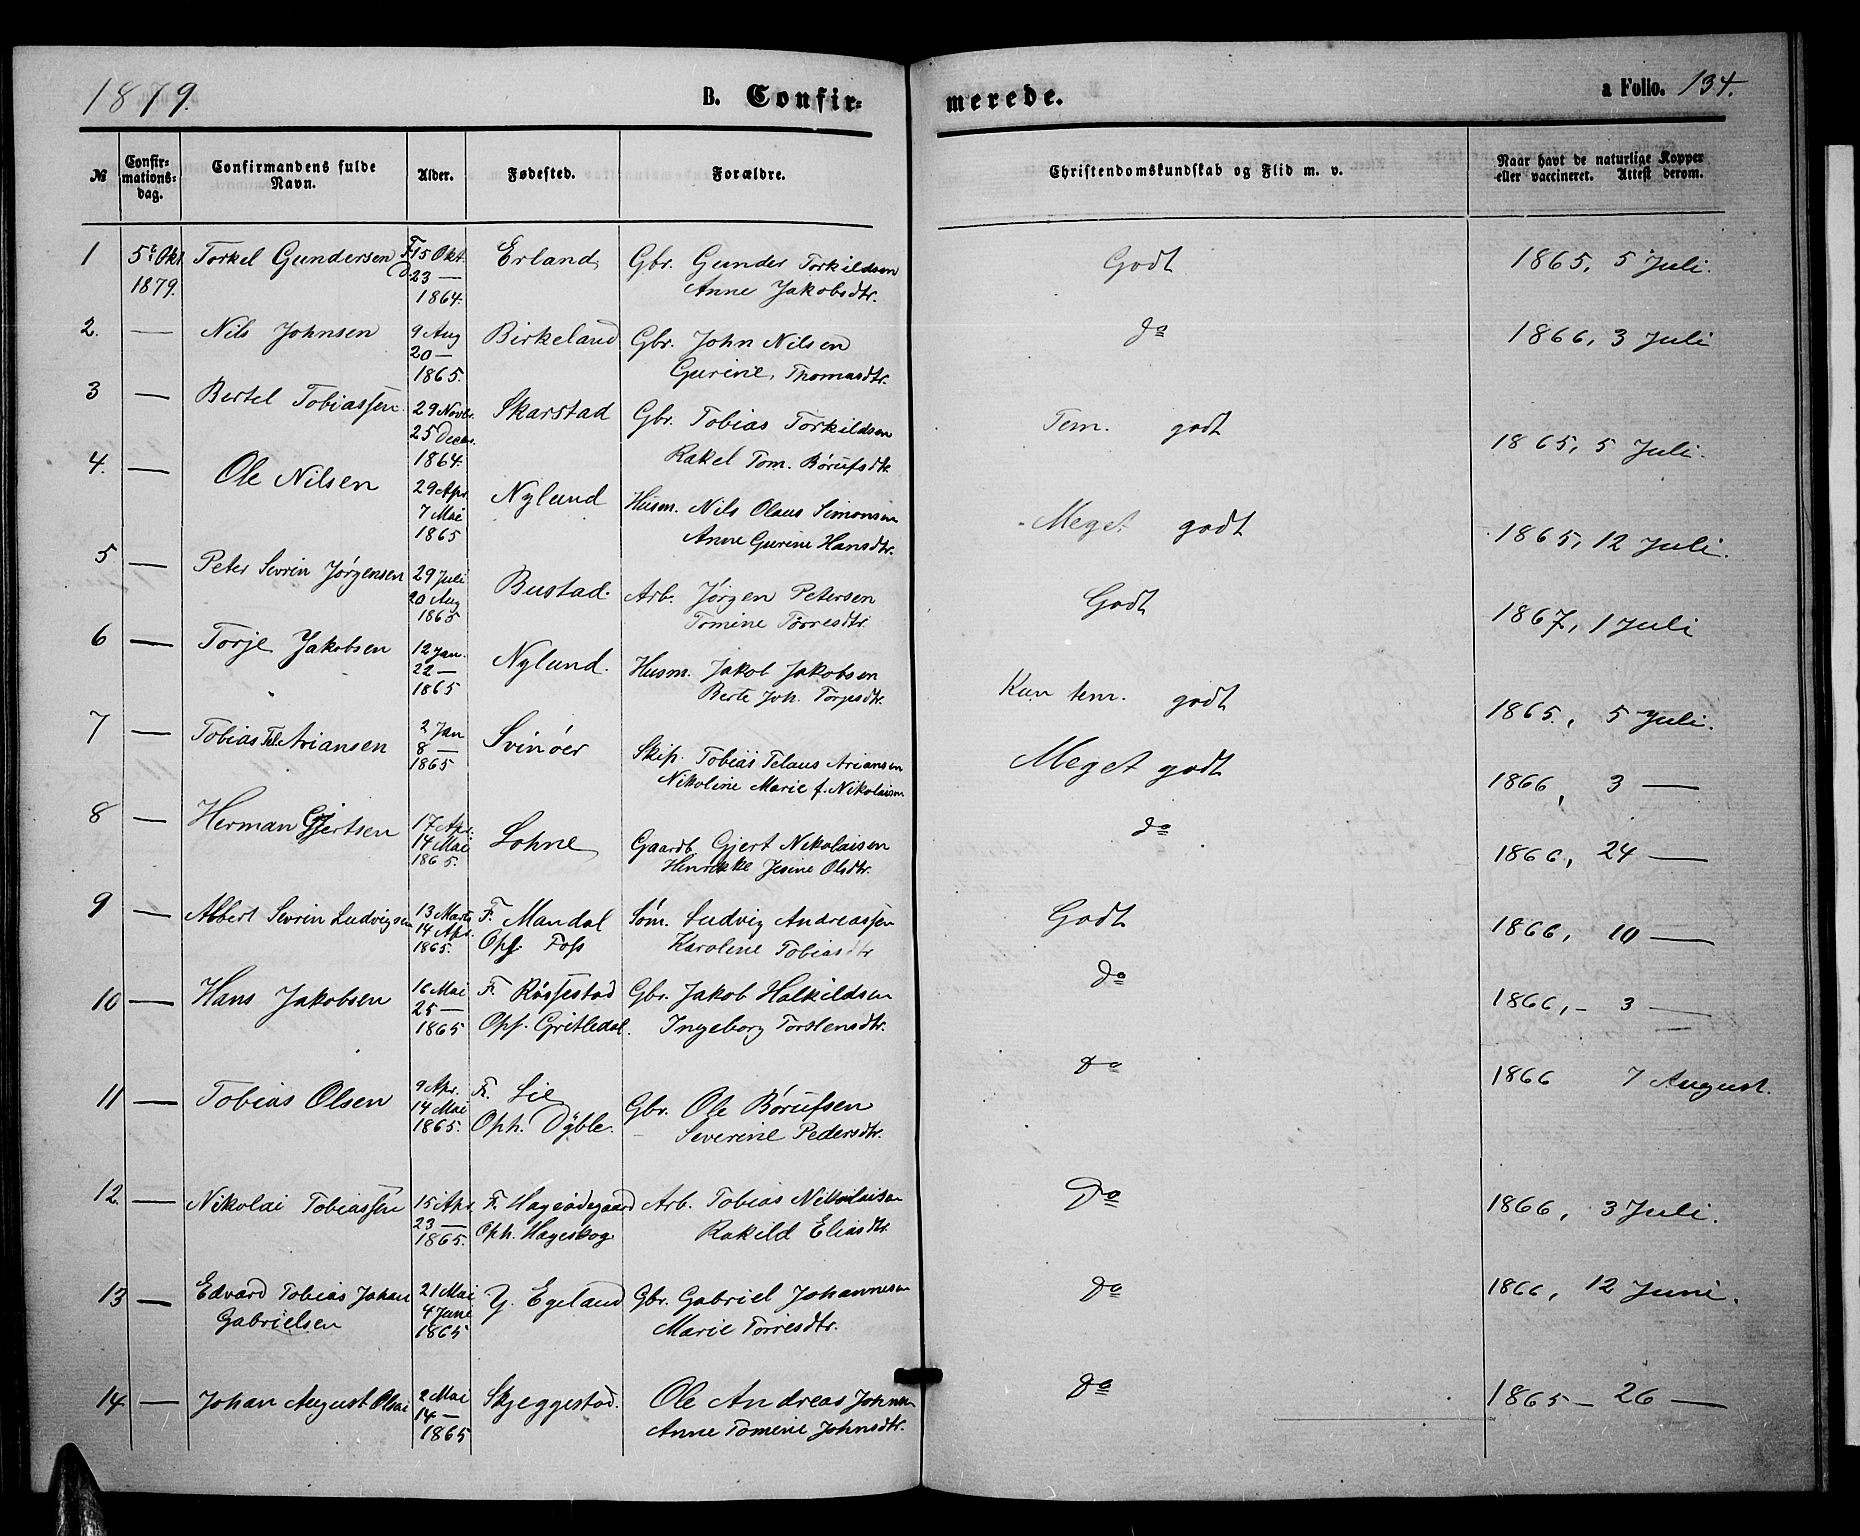 1879. B. Confir= merede. a Folio. 134.
№ Confir=mations=dag. Confirmandens fulde Navn. Alder. Fødested. Forældre. Christendomskundskab og Flid m. v. Naar havt de naturlige Kopper eller vaccineret. Attest derom.
1 5te Okt. Torkel Gundersen F. 15 Okt. Erland Gbr. Gunder Torkildsen Godt 1865, 5 Juli.
1879. D. 23 — Anne Jakobsdtr.
1864.
2. — Nils Johnsen 9 Aug Birkeland Gbr. John Nilsen do 1866, 3 Juli
20 — Gurine Thomasdtr.
1865.
3 — Bertel Tobiassen 29 Novbr. Skarstad Gbr. Tobias Torkildsen Tem. godt 1865, 5 Juli.
25 Decbr. Rakel Tom. Børufsdtr.
1864.
4. — Ole Nilsen 29 Apr. Nylund Husm. Nils Olaus Simonsen Meget godt 1865, 12 Juli.
7 Mai Anne Gurine Hansdtr.
1865
5 — Peter Sevrin Jørgensen 29 Juli Bustad. Arb. Jørgen Petersen Godt 1867, 1 Juli
20 Aug Tomine Torresdtr.
1865
6 — Torje Jakobsen 12 Jan. Nylund. Husm. Jakob Jakobsen Kun tem. godt 1865, 5 Juli.
22 — Berte Joh. Torjesdtr.
1865
7 — Tobias Tel. Ariansen 2 Jan Svinøer Skip. Tobias Telaus Ariansen Meget godt 1866, 3 —
8 — Nikoline Marie f. Nikolaisen
1865
8 — Herman Gjertsen 17 Apr. Lohne Gaardb. Gjert Nikolaisen do 1866, 24 —
14 Mai Henrikke Jesine Olsdtr.
1865.
9 — Albert Sevrin Ludvigsen 13 Marts F. Mandal Søm. Ludvig Andreassen Godt 1866, 10 —
14 Apr. Opf. Foss Karoline Tobiasdtr
1865.
10 — Hans Jakobsen 16 Mai F. Røssestad Gbr. Jakob Halkildsen do 1866, — 3 —
25 — Opf. Gritledal. Ingeborg Torstensdtr.
1865
11 — Tobias Olsen 9 Apr. F. Lie Gbr. Ole Børufsen do 1866 7 August.
14 Mai Oph. Dyble. Severine Pedersdtr.
1865.
12 — Nikolai Tobiassen 15 Apr. F. Hageødegaard Arb. Tobias Nikolaisen Do 1866, 3 Juli.
23 — Oph. Hageskog Rakild Eliasdtr.
1865.
13 — Edvard Tobias Johan 21 Mai Y. Egeland Gbr. Gabriel Johannesen do 1866, 12 Juni.
Gabrielsen 4 Juni Marie Torresdtr.
1865
14 — Johan August Olsen 2 Mai Skjeggestad. Ole Andreas Johnsen do 1865 — 26 —
14 — Anne Tomine Johnsdtr.
1865